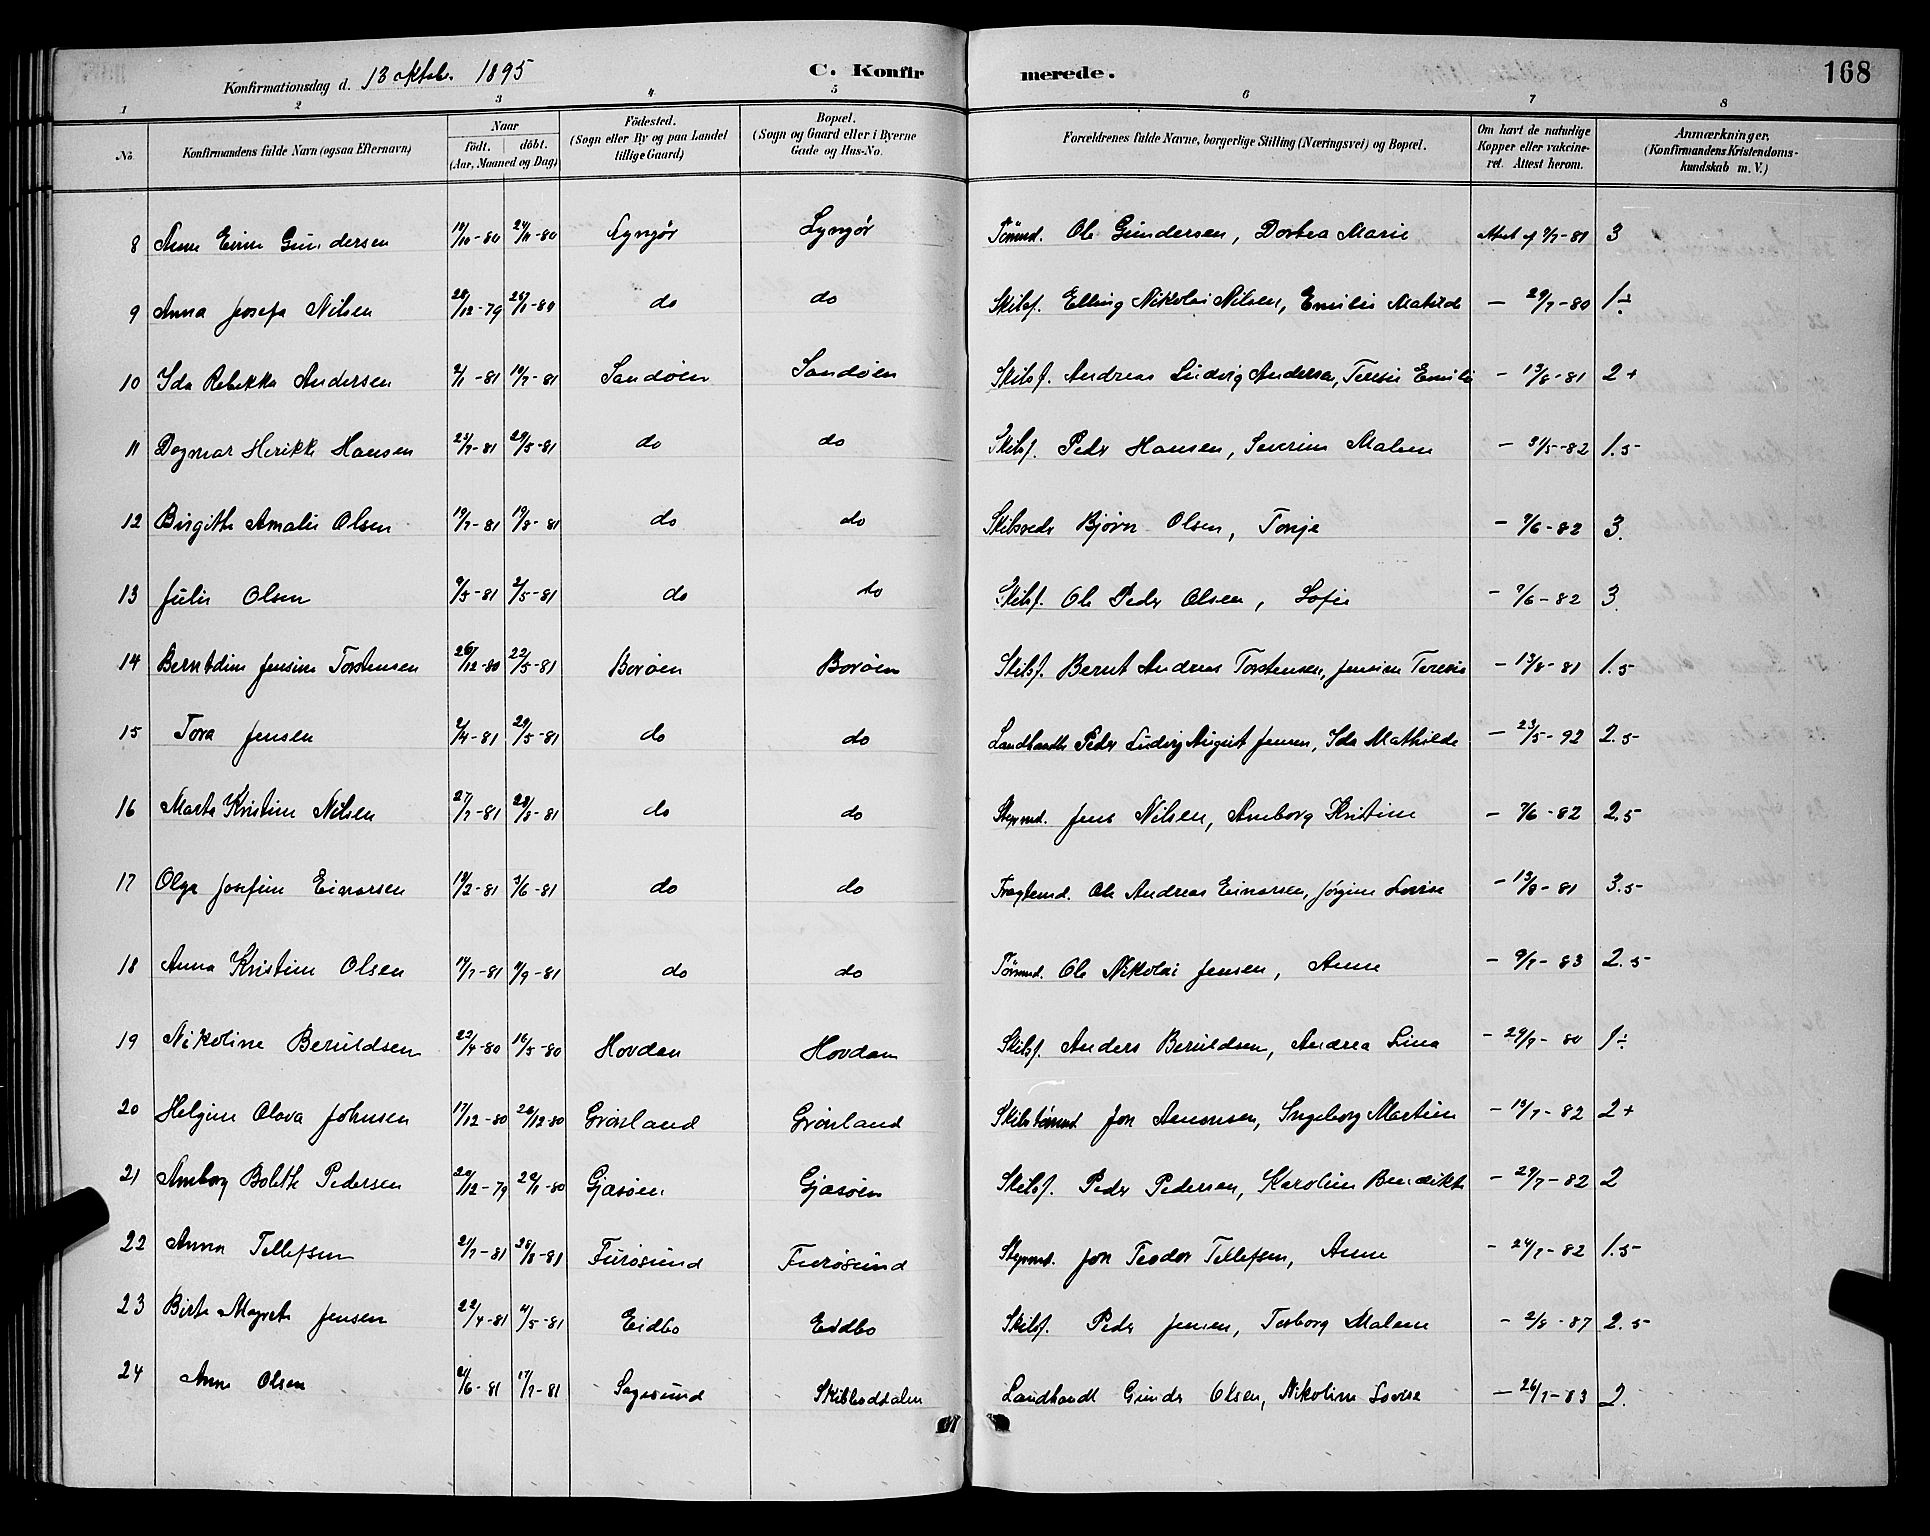 Konfirmationsdag d. 13 oktob. 1895 C. Konfirmerede. 168
1 2 3 4 5 6 7 8
No. Konfirmandens fulde Navn (ogsaa Efternavn) Naar født. døbt. (Aar, Maaned og Dag) Födested. (Sogn eller By og paa Landet tillige Gaard) Bopæl. (Sogn og Gaard eller i Byerne Gade og Hus-No. Forældrenes fulde Navne, borgerlige Stilling (Næringsvei) og Bopæl. Om havt de naturlige Kopper eller vakcineret. Attest herom. Anmærkninger. (Konfirmandens Kristendomskundskab m. V.)
8 Anne Eline Gundersen /10-80 24/11-80 Lyngör Lyngör Tömmd. Ole Gundersen, Dortea Marie Attest af /7-81 3
9 Anna Josefa Nilsen 28/12-79 26/1-80 do do Skibsf. Elling Nikolai Nilsen, Emilie Matilde - 29/7-80 1÷
10 Ida Rebekka Andersen 2/1-81 10/7-81 Sandöen Sandöen Skibsf. Andreas Ludvig Andersen, Teresie Emilie - 13/8-81 2+
11 Dagmar Henrikke Hansen 29/5-81 do do Skibsf. Peder Hansen, Severine Malene - 31/5-82 1.5
12 Birgithe Amalie Olsen 19/7-81 19/8-81 do do Skibsreder Bjørn Olsen, Tonje - 7/6-82 3.
13 Julie Olsen 9/3-81 2/5-81 do do Skibsf. Ole Peder Olsen, Sofie - 7/6-82 3.
14 Berntdine Jensine Torstensen 26/12-80 22/5-81 Boröen Boröen Skibsf. Bernt Andreas Torstensen, Jensine Teresie - 13/8-81 1.5
15 Tora Jensen 2/4-81 29/5-81 do do Landhandler Peder Ludvig August Jensen, Ida Mathilde - 23/5-92 2.5
16 Marte Kristine Nilsen 27/7-81 28/8-81 do do Styrmd. Jens Nilsen, Anborg Kristine - 7/6-82 2.5
17 Olga Josefine Einarsen 14/2-81 3/6-81 do do Fragtemd. Ole Andreas Einarsen, Jörgine Lovise - 13/8-81 3.5
18 Anna Kristine Olsen 14/7-81 /9-81 do do Tömmd. Ole Nikolai Jensen, Anne - 9/7-83 2.5
19 Nikoline Beruldsen 22/4-80 16/5-80 Hovdan Hovdan Skibsf. Anders Beruldsen, Andrea Lina - 29/9-80 1÷
20 Helgine Olava Johnsen 17/12-80 26/12-80 Grönland Grönland Skibstömmd. Jon Amonsen, Ingeborg Martine - 13/7-82 2+
21 Anborg Bolette Pedersen 20/12-79 20/1-80 Gjasöen Gjasöen Skibsf. Peder Pedersen, Karoline Benedikte - 29/7-82 2
22 Anna Tellefsen 21/7-81 28/8-81 Furösund Furösund Styrmd. Jon Teodor Tellefsen, Anne - 24/7-82 1.5
23 Birte Magrete Jensen 22/4-81 4/5-81 Eidbo Eidbo Skibsf. Peder Jensen, Torborg Malene - 2/8-87 2.5
24 Anne Olsen 21/6-81 17/7-81 Sagesund Skibboddalen Landhandl Gunder Olsen, Nikoline Lovise - 26/7-83 2.